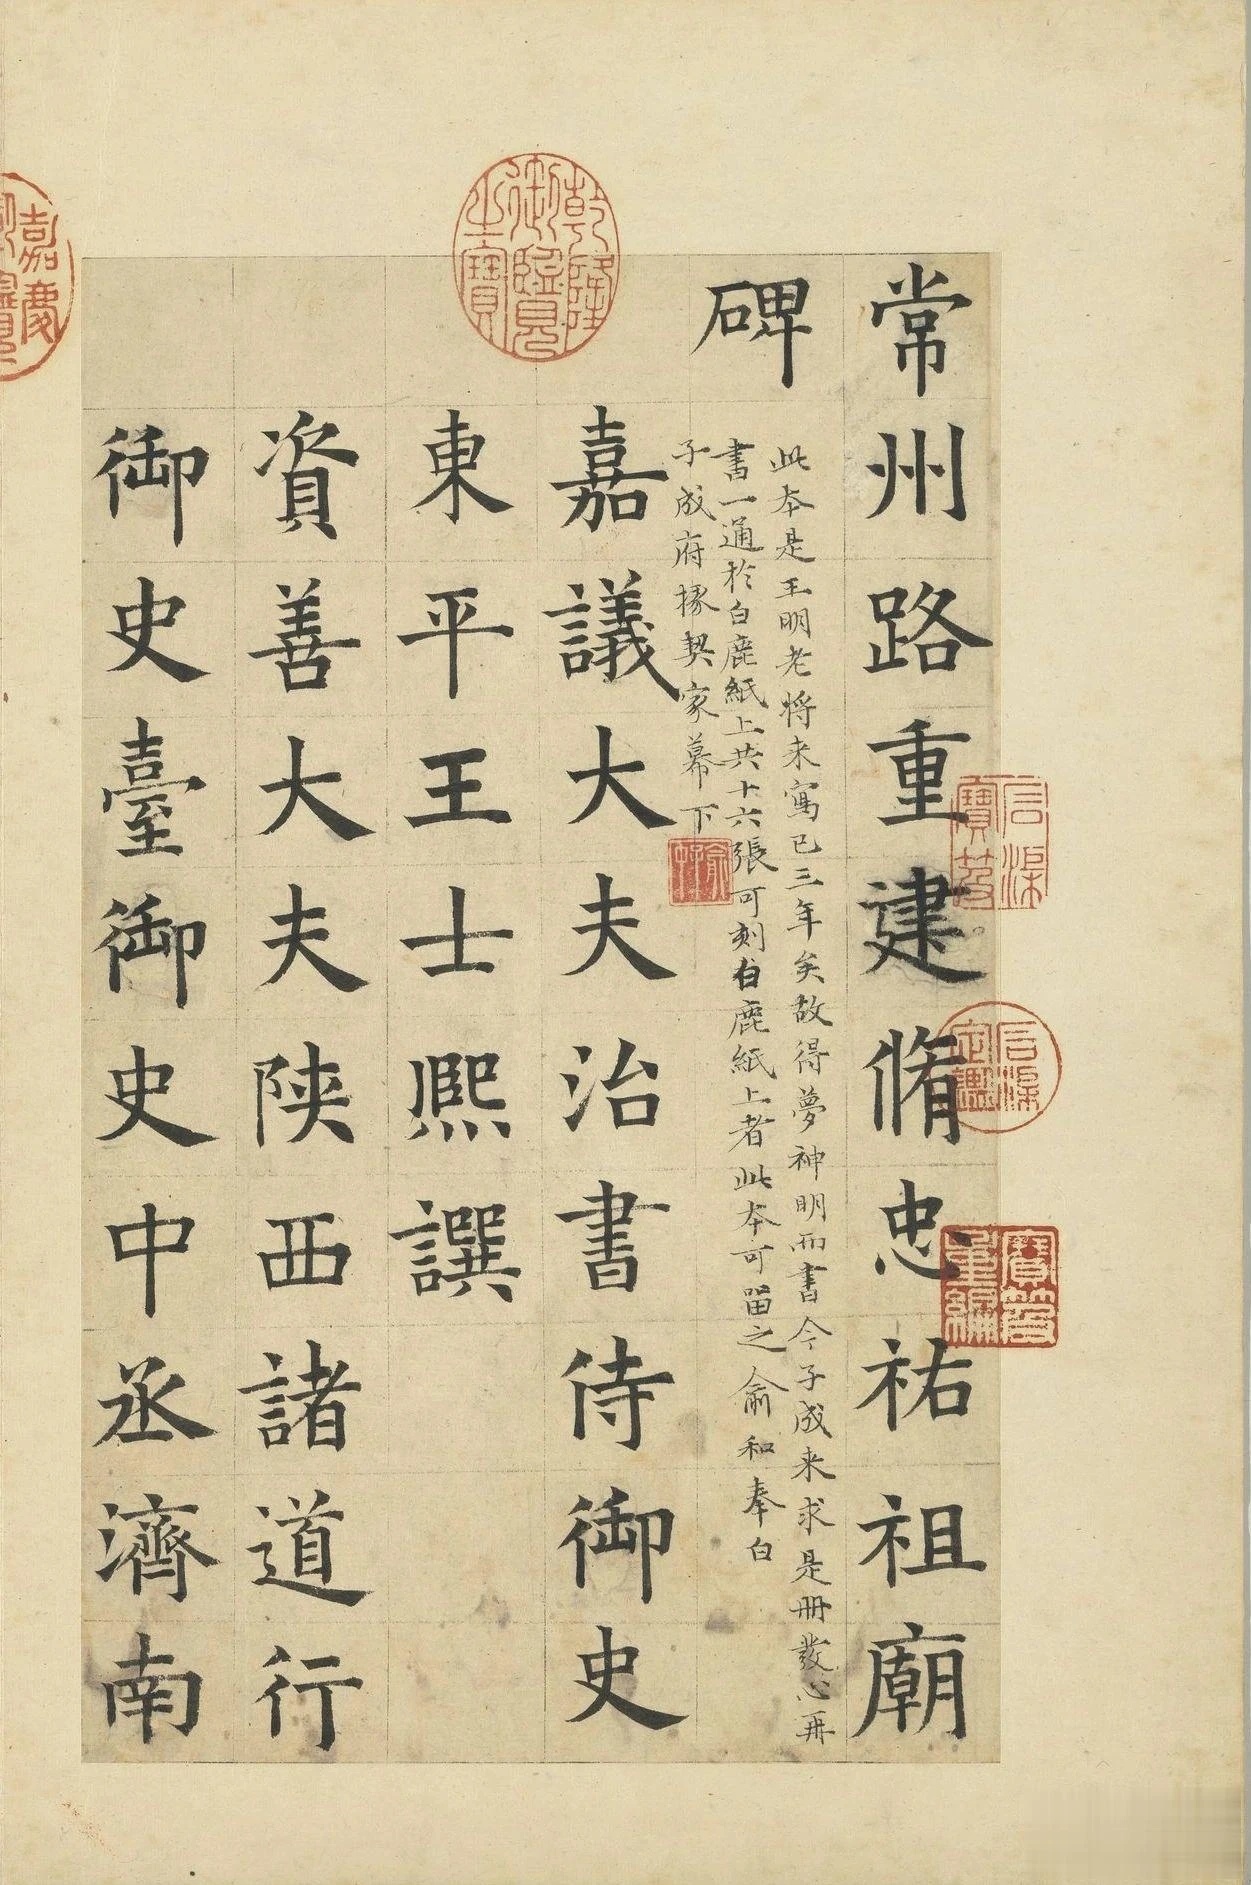 常州路重建脩忠祐祖廟
碑
此本是王明老將来寫已三年矣故得夢神明而書今子成来求是册發心再
書一通於白鹿紙上共十六張可刻白鹿紙上者此本可留之俞和奉白
子成府掾契家幕下
嘉議大夫治書侍御史
東平王士熙譔
資善大夫陝西諸道行
御史臺御史中丞濟南
乾隆御覽之寶
嘉慶
石渠寶笈
石渠定鑑
寶笈重編